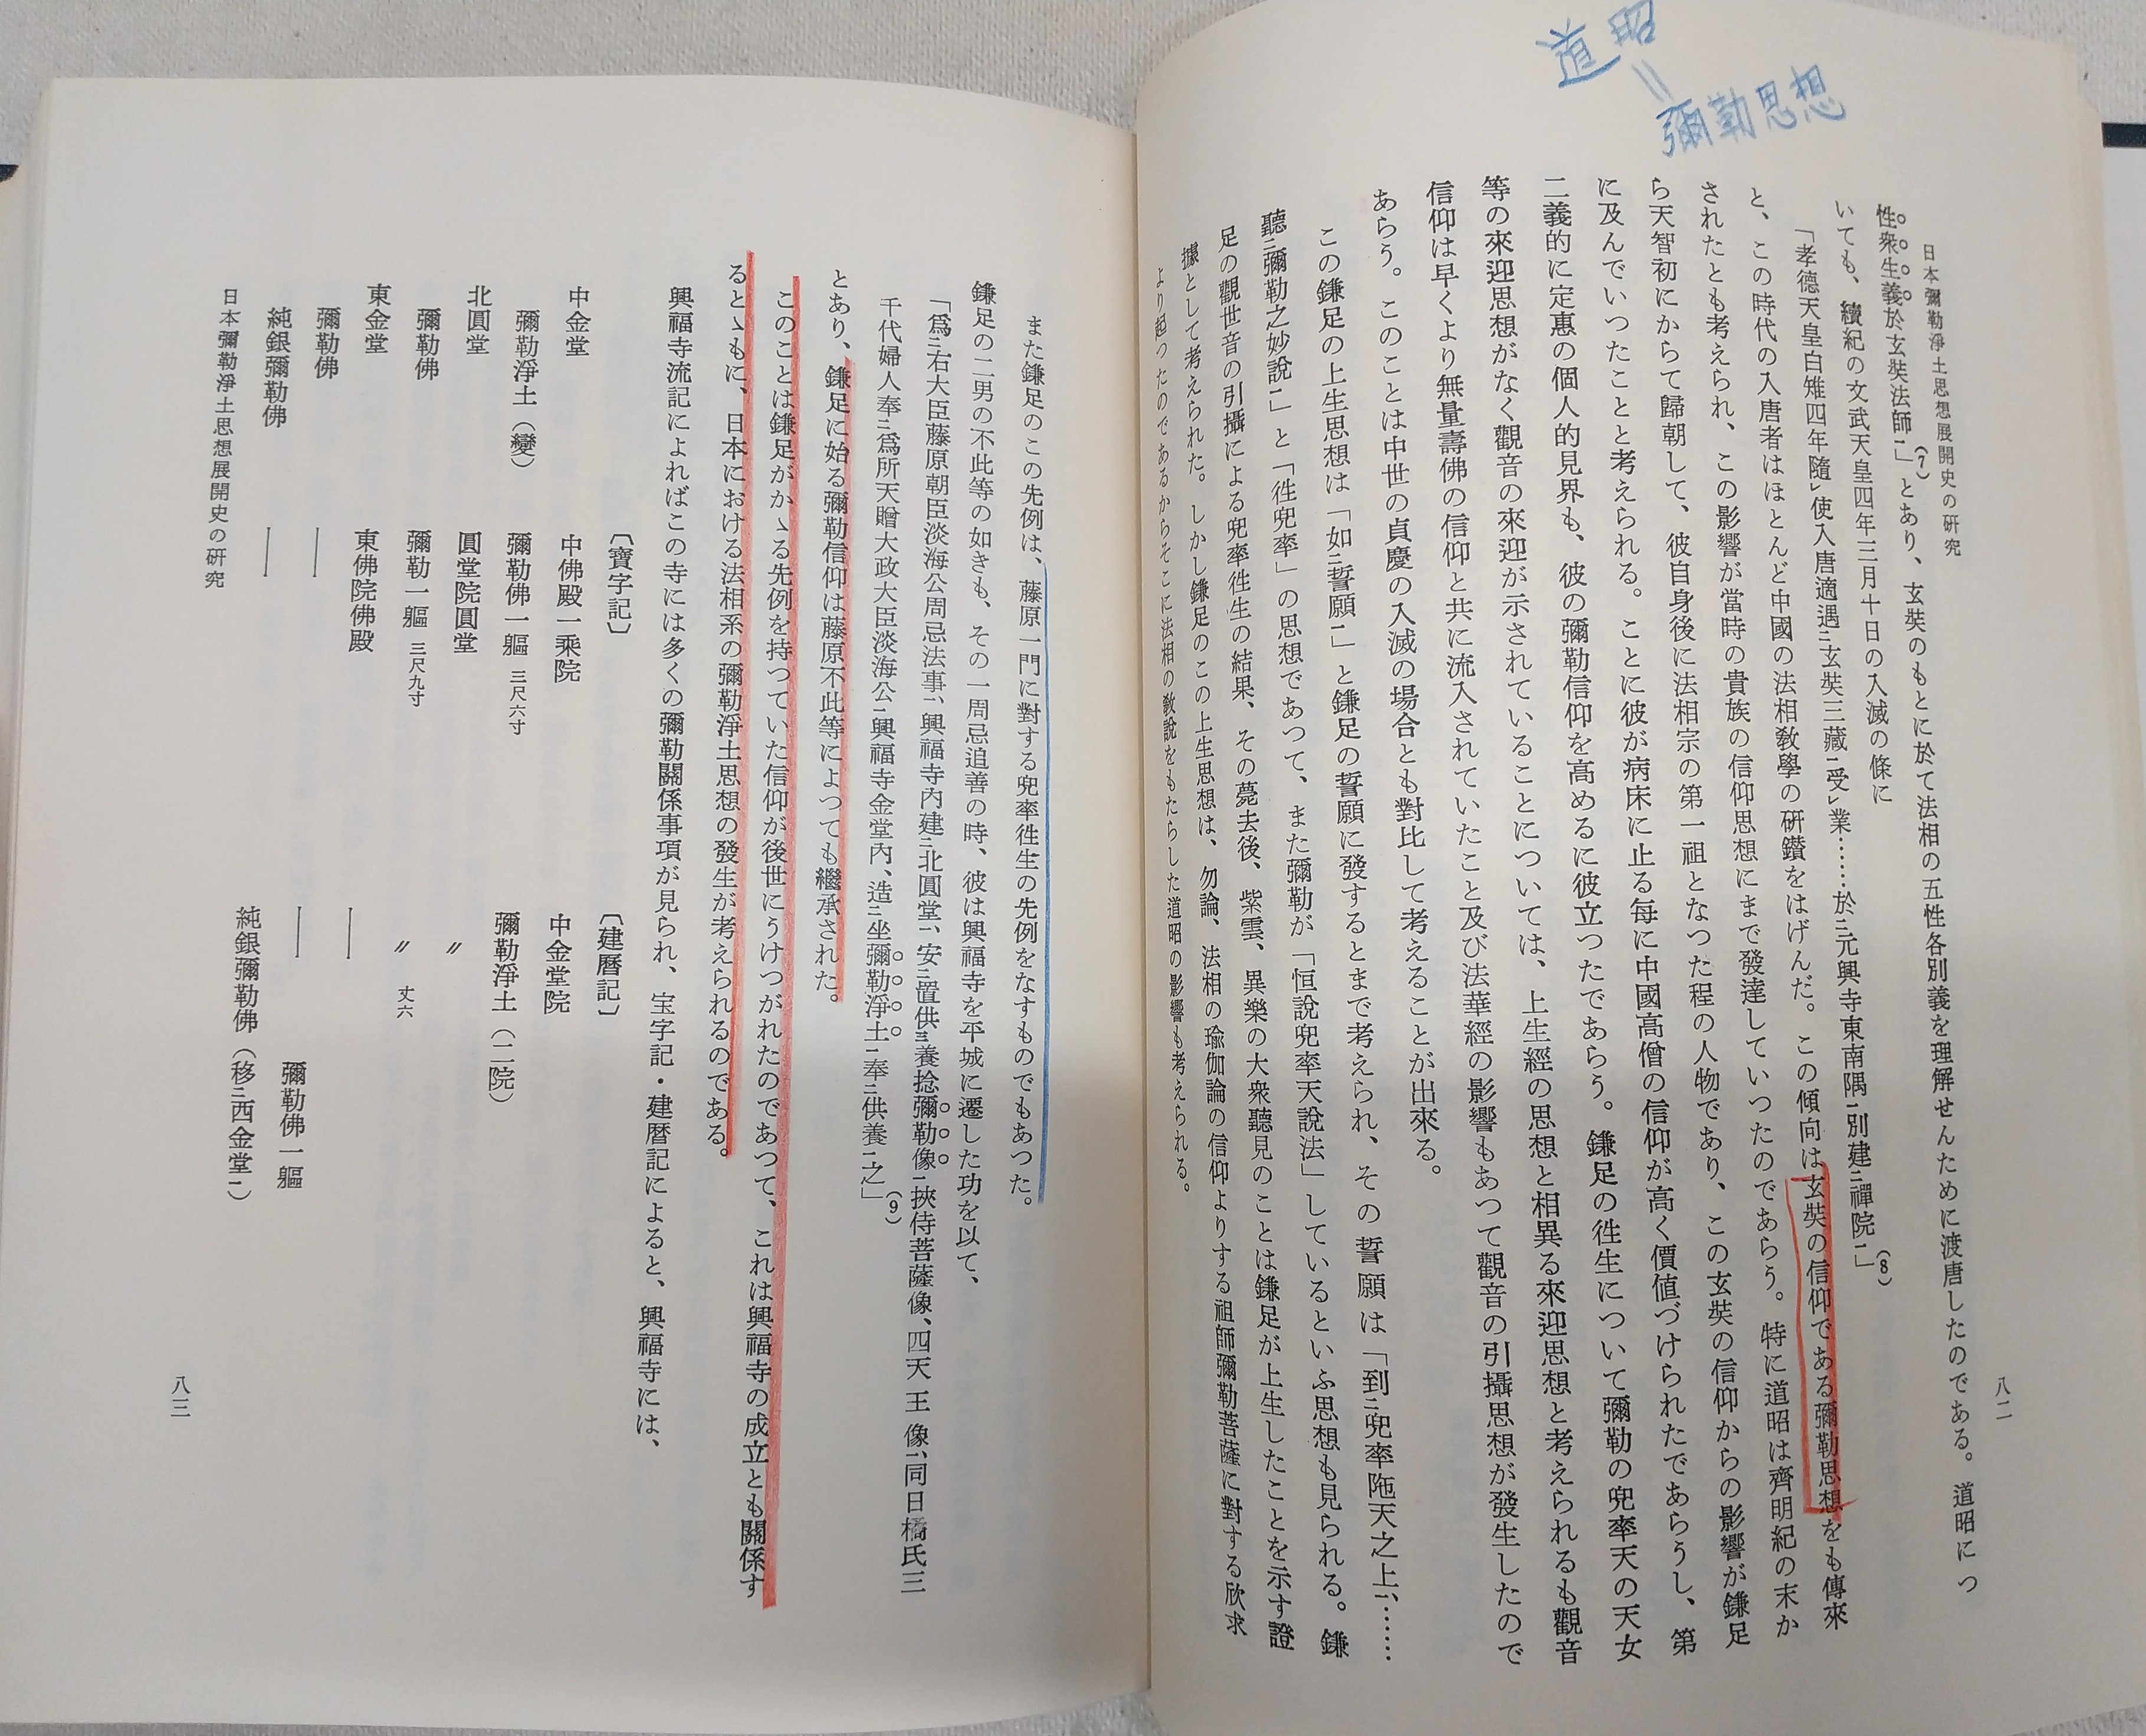 道昭
＝
彌勒思想
日本彌勒淨土思想展開史の研究
八二
性衆生義於玄奘法師ニ」(7)とあり、玄奘のもとに於て法相の五性各別義を理解せんために渡唐したのである。道昭につ
いても、續紀の文武天皇四年三月十日の入滅の條に
「孝德天皇白雉四年隨レ使入唐適遇ニ玄奘三藏一受レ業……於ニ元興寺東南隅一別建ニ禪院ニ」(8)
と、この時代の入唐者はほとんど中國の法相敎學の研鑽をはげんだ。この傾向は玄奘の信仰である彌勒思想をも傳來
されたとも考えられ、この影響が當時の貴族の信仰思想にまで發達していつたのであらう。特に道昭は齊明紀の末か
ら天智初にかけて歸朝して、彼自身後に法相宗の第一祖となつた程の人物であり、この玄奘の信仰からの影響が鎌足
に及んでいつたことと考えられる。ことに彼が病床に止る每に中國高僧の信仰が高く價値づけられたであらうし、第
二義的に定惠の個人的見界も、彼の彌勒信仰を高めるに彼立つたであらう。鎌足の徃生について彌勒の兜率天の天女
等の來迎思想がなく觀音の來迎が示されていることについては、上生經の思想と相異る來迎思想と考えられるも觀音
信仰は早くより無量壽佛の信仰と共に流入されていたこと及び法華經の影響もあつて觀音の引攝思想が發生したので
あらう。このことは中世の貞慶の入滅の場合とも對比して考えることが出來る。
この鎌足の上生思想は「如ニ誓願ニ」と鎌足の誓願に發するとまで考えられ、その誓願は「到ニ兜率陁天之上一、……
聽ニ彌勒之妙說ニ」と「徃兜率」の思想であつて、また彌勒が「恒說兜率天說法」しているといふ思想も見られる。鎌
足の觀世音の引攝による兜率徃生の結果、その薨去後、紫雲、異樂の大衆聽見のことは鎌足が上生したことを示す證
據として考えられた。しかし鎌足のこの上生思想は、勿論、法相の瑜伽論の信仰よりする祖師彌勒菩薩に對する欣求
より起つたのであるからそこに法相の敎說をもたらした道昭の影響も考えられる。
また鎌足のこの先例は、藤原一門に對する兜率徃生の先例をなすものでもあつた。
鎌足の二男の不此等の如きも、その一周忌追善の時、彼は興福寺を平城に遷した功を以て、
「爲ニ右大臣藤原朝臣淡海公周忌法事一、興福寺內建ニ北圓堂一、安ニ置供ニ養捻彌勒像一挾侍菩薩像、四天王像一、同日橘氏三
千代婦人奉ニ爲所天贈大政大臣淡海公一興福寺金堂內、造ニ坐彌勒淨土一奉ニ供養一之」(9)
とあり、鎌足に始る彌勒信仰は藤原不此等によつても繼承された。
このことは鎌足がかゝる先例を持つていた信仰が後世にうけつがれたのであつて、これは興福寺の成立とも關係す
るとゝもに、日本における法相系の彌勒淨土思想の發生が考えられるのである。
興福寺流記によればこの寺には多くの彌勒關係事項が見られ、宝字記・建曆記によると、興福寺には、
〔寶字記〕　〔建曆記〕
中金堂　中佛殿一乘院　中金堂院
彌勒淨土（變）　彌勒佛一軀 三尺六寸　彌勒淨土（二院）
北圓堂　圓堂院圓堂　〃
彌勒佛　彌勒一軀 三尺九寸　〃　丈六
東金堂　東佛院佛殿　――
彌勒佛　――　――　彌勒佛一軀
純銀彌勒佛　――　純銀彌勒佛（移ニ西金堂ニ）
日本彌勒淨土思想展開史の研究
八三